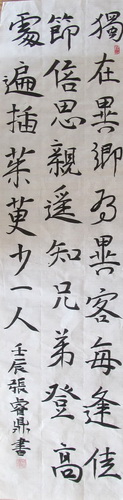 獨在異鄉為異客每逢佳
節倍思親遥知兄弟登高
處遍插茱萸少一人
壬辰張睿鼎書